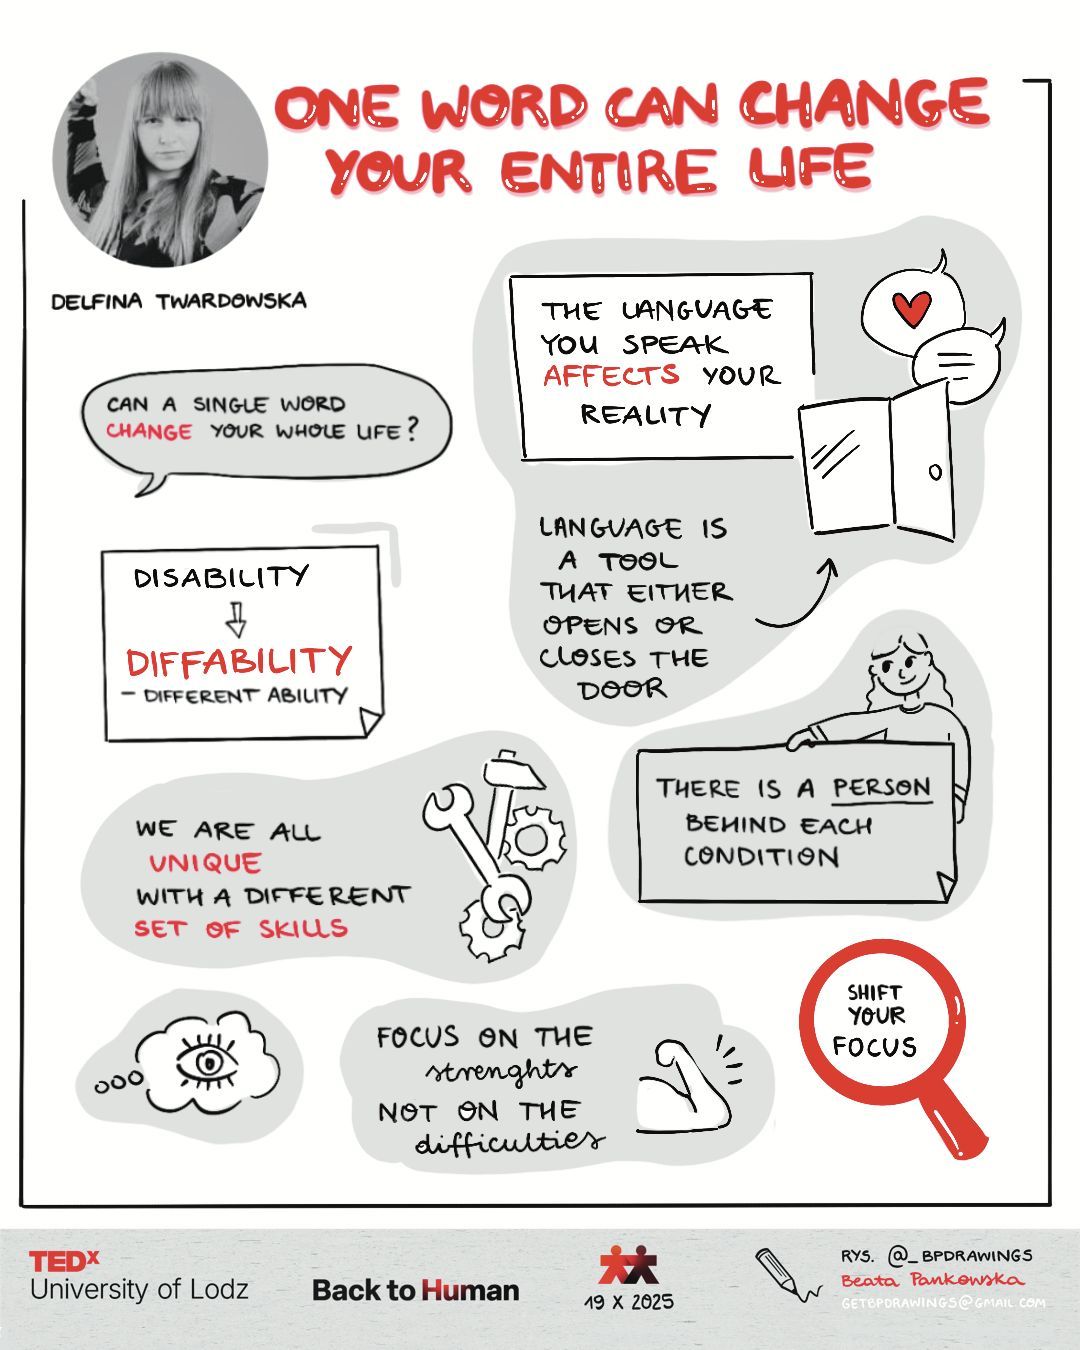 ONE WORD CAN CHANGE
YOUR ENTIRE LIFE
DELFINA TWARDOWSKA
CAN A SINGLE WORD
CHANGE YOUR WHOLE LIFE?
THE LANGUAGE
YOU SPEAK
AFFECTS YOUR
REALITY
LANGUAGE IS
A TOOL
THAT EITHER
OPENS OR
CLOSES THE
DOOR
DISABILITY
DIFFABILITY
- DIFFERENT ABILITY
THERE IS A PERSON
BEHIND EACH
CONDITION
WE ARE ALL
UNIQUE
WITH A DIFFERENT
SET OF SKILLS
FOCUS ON THE
strenghts
NOT ON THE
difficulties
SHIFT
YOUR
FOCUS
TEDx
University of Lodz
Back to Human
19 X 2025
RYS. @_BPDRAWINGS
Beata Pankowska
GETBPDRAWINGS@GMAIL.COM